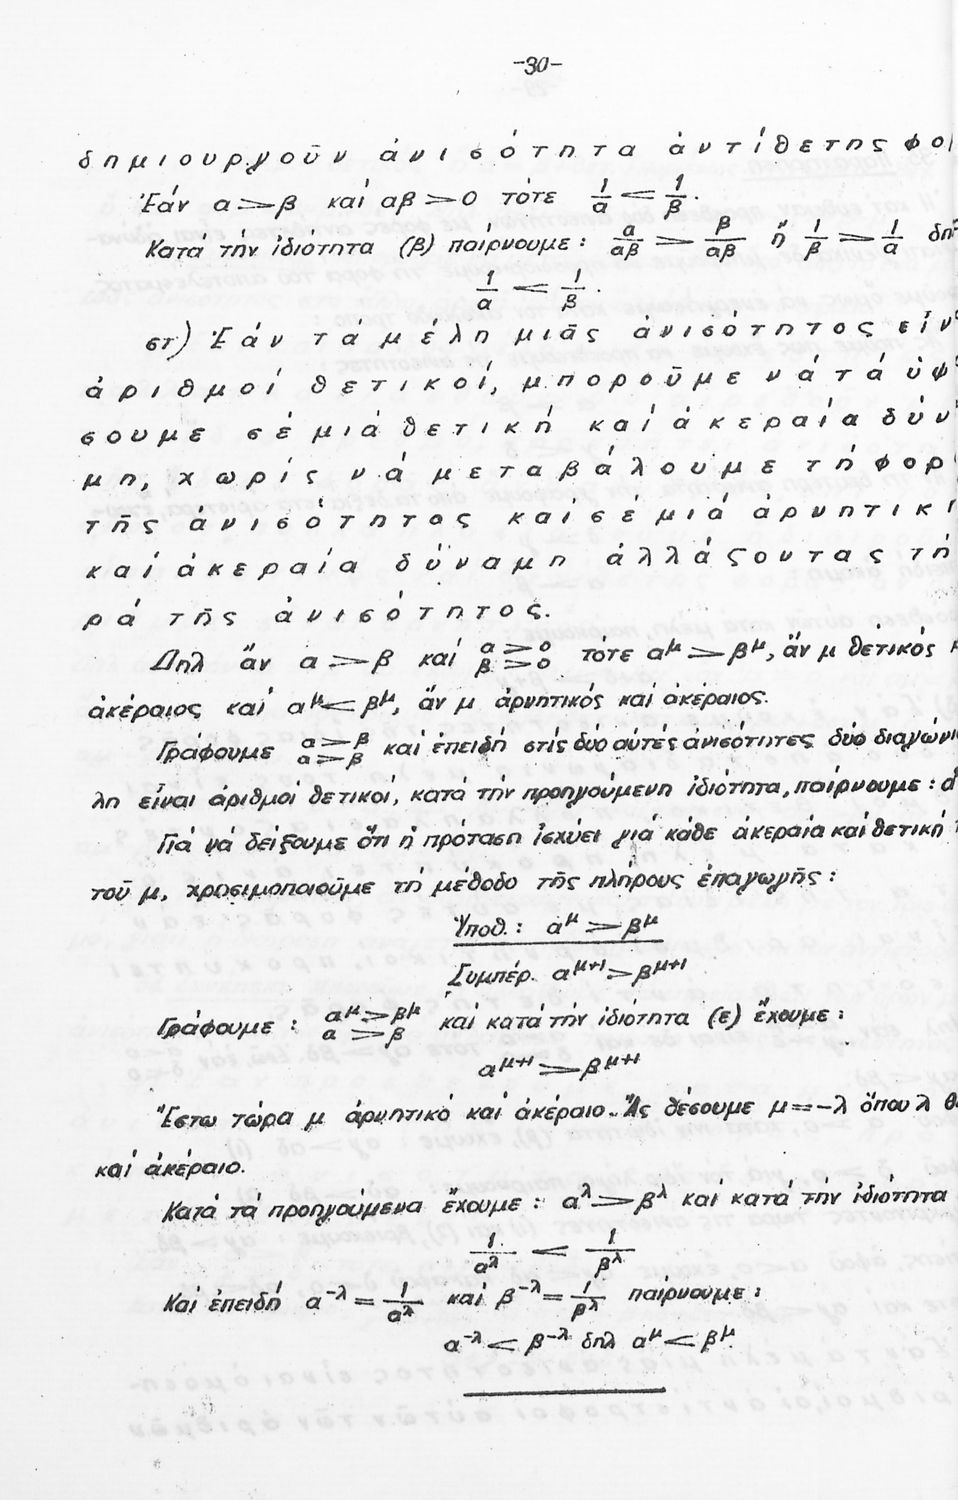 -30-
δημιουργοῦν ἀνισότητα ἀντίθετης φο
Ἐάν α > β καί αβ > 0 τότε 1/α < 1/β.
Κατά τήν ἰδιότητα (β) παίρνουμε: α/αβ > β/αβ ἤ 1/β > 1/α δη
1/α < 1/β.
στ) Ἐάν τά μέλη μιᾶς ἀνισότητος εἶν
ἀριθμοί θετικοί, μποροῦμε νά τά ὑψ
σουμε σέ μιά θετική καί ἀκεραία δύν
μη, χωρίς νά μεταβάλουμε τή φορ
τῆς ἀνισότητος καί σέ μιά ἀρνητικ
καί ἀκεραία δύναμη ἀλλάζοντας τή
ρά τῆς ἀνισότητος.
Δηλ ἄν α > β καί α > 0 β > 0 τότε α^μ > β^μ, ἄν μ θετικός
ἀκέραιος καί α^μ < β^μ, ἄν μ ἀρνητικός καί ἀκέραιος.
Γράφουμε α > β α > β καί ἐπειδή στίς δύο αὐτές ἀνισότητες δύο διαγώνι
λη εἶναι ἀριθμοί θετικοί, κατά τήν προηγούμενη ἰδιότητα, παίρνουμε: α
Γιά νά δείξουμε ὅτι ἡ πρόταση ἰσχύει γιά κάθε ἀκεραία καί θετική
τοῦ μ, χρησιμοποιοῦμε τή μέθοδο τῆς πλήρους ἐπαγωγῆς:
Ὑποθ.: α^μ > β^μ
Συμπέρ. α^μ+1 > β^μ+1
Γράφουμε: α^μ > β^μ α > β καί κατά τήν ἰδιότητα (ε) ἔχουμε:
α^μ+1 > β^μ+1
Ἔστω τώρα μ ἀρνητικό καί ἀκέραιο. Ἄς θέσουμε μ = -λ ὅπου λ θ
καί ἀκέραιο.
Κατά τά προηγούμενα ἔχουμε: α^λ > β^λ καί κατά τήν ἰδιότητα
1/α^λ < 1/β^λ
Καί ἐπειδή α^-λ = 1/α^λ καί β^-λ = 1/β^λ παίρνουμε:
α^-λ < β^-λ δηλ α^μ < β^μ.